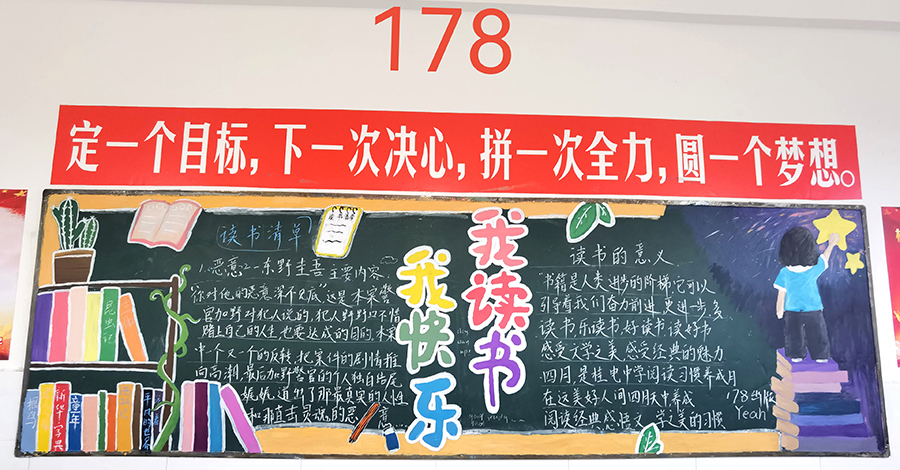 178
定一个目标,下一次决心,拼一次全力,圆一个梦想。
读书清单
1.恶意2-东野圭吾主要内容
"你对他的恶意深不见底"这是本案警
官加野对犯人说的,犯人野野口不惜
踏上自己的人生也要达成的目的,本案
中一个又一个的反转,把案件的剧情推
向高潮,最后加野警官的个人独白
娓娓道出了那最真实的人性
和
我读书
我快乐
读书的意义
书籍是人类进步的阶梯,它可以
引导着我们奋力前进,更进一步,多
读书乐读书好读书读好书
感受文学之美感受经典的魅力
四月,是桂电中学阅读习惯养成月
在这美好人间四月天中养成
阅读经典感悟文学之美的习惯
178出版
Yeah
昆虫记
新华字典
童年
平凡的世界